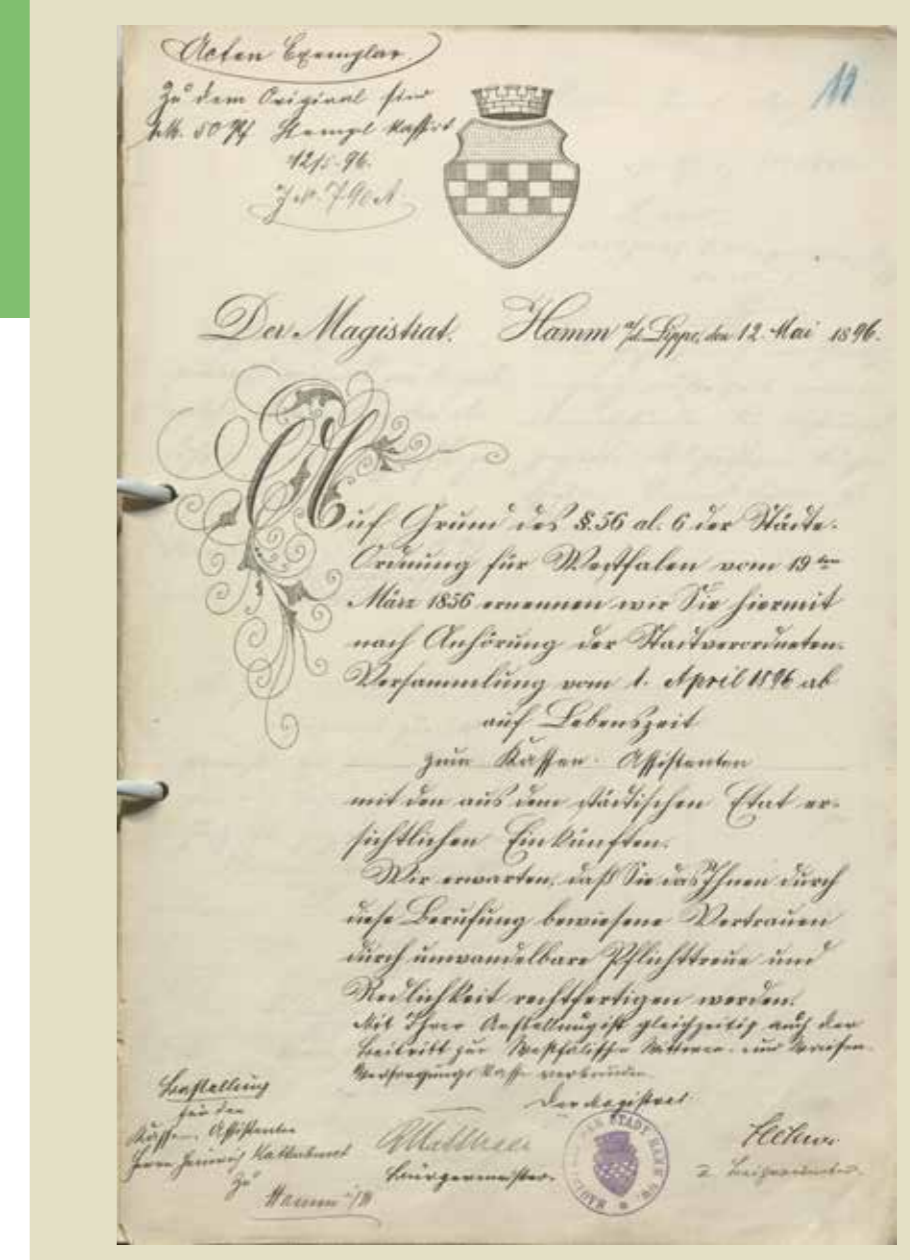 Acten Exemplar
Zu dem Original sind
50 Pf Stempel kassirt
12/5. 96.
J № 790 A
11
Der Magistrat. Hamm a/d. Lippe, den 12. Mai 1896.
Auf Grund des §. 56 al. 6 der Städte-
Ordnung für Westfalen vom 19ten
März 1856 ernennen wir Sie hiermit
nach Anhörung der Stadtverordneten-
Versammlung vom 1. April 1896 ab
auf Lebenszeit
zum Kassen-Assistenten
mit den aus dem städtischen Etat er-
sichtlichen Einkünften.
Wir erwarten, daß Sie das Ihnen durch
diese Berufung bewiesene Vertrauen
durch unwandelbare Pflichttreue und
Redlichkeit rechtfertigen werden.
Mit Ihrer Anstellung ist gleichzeitig auch der
Beitritt zur Westfälischen Wittwen- und Waisen-
Versorgungs Kasse verbunden.
Der Magistrat
Bestallung
für den
Kassen-Assistenten
Herrn Heinrich
zu
Hamm i/W
Bürgermeister.
STADT HAMM